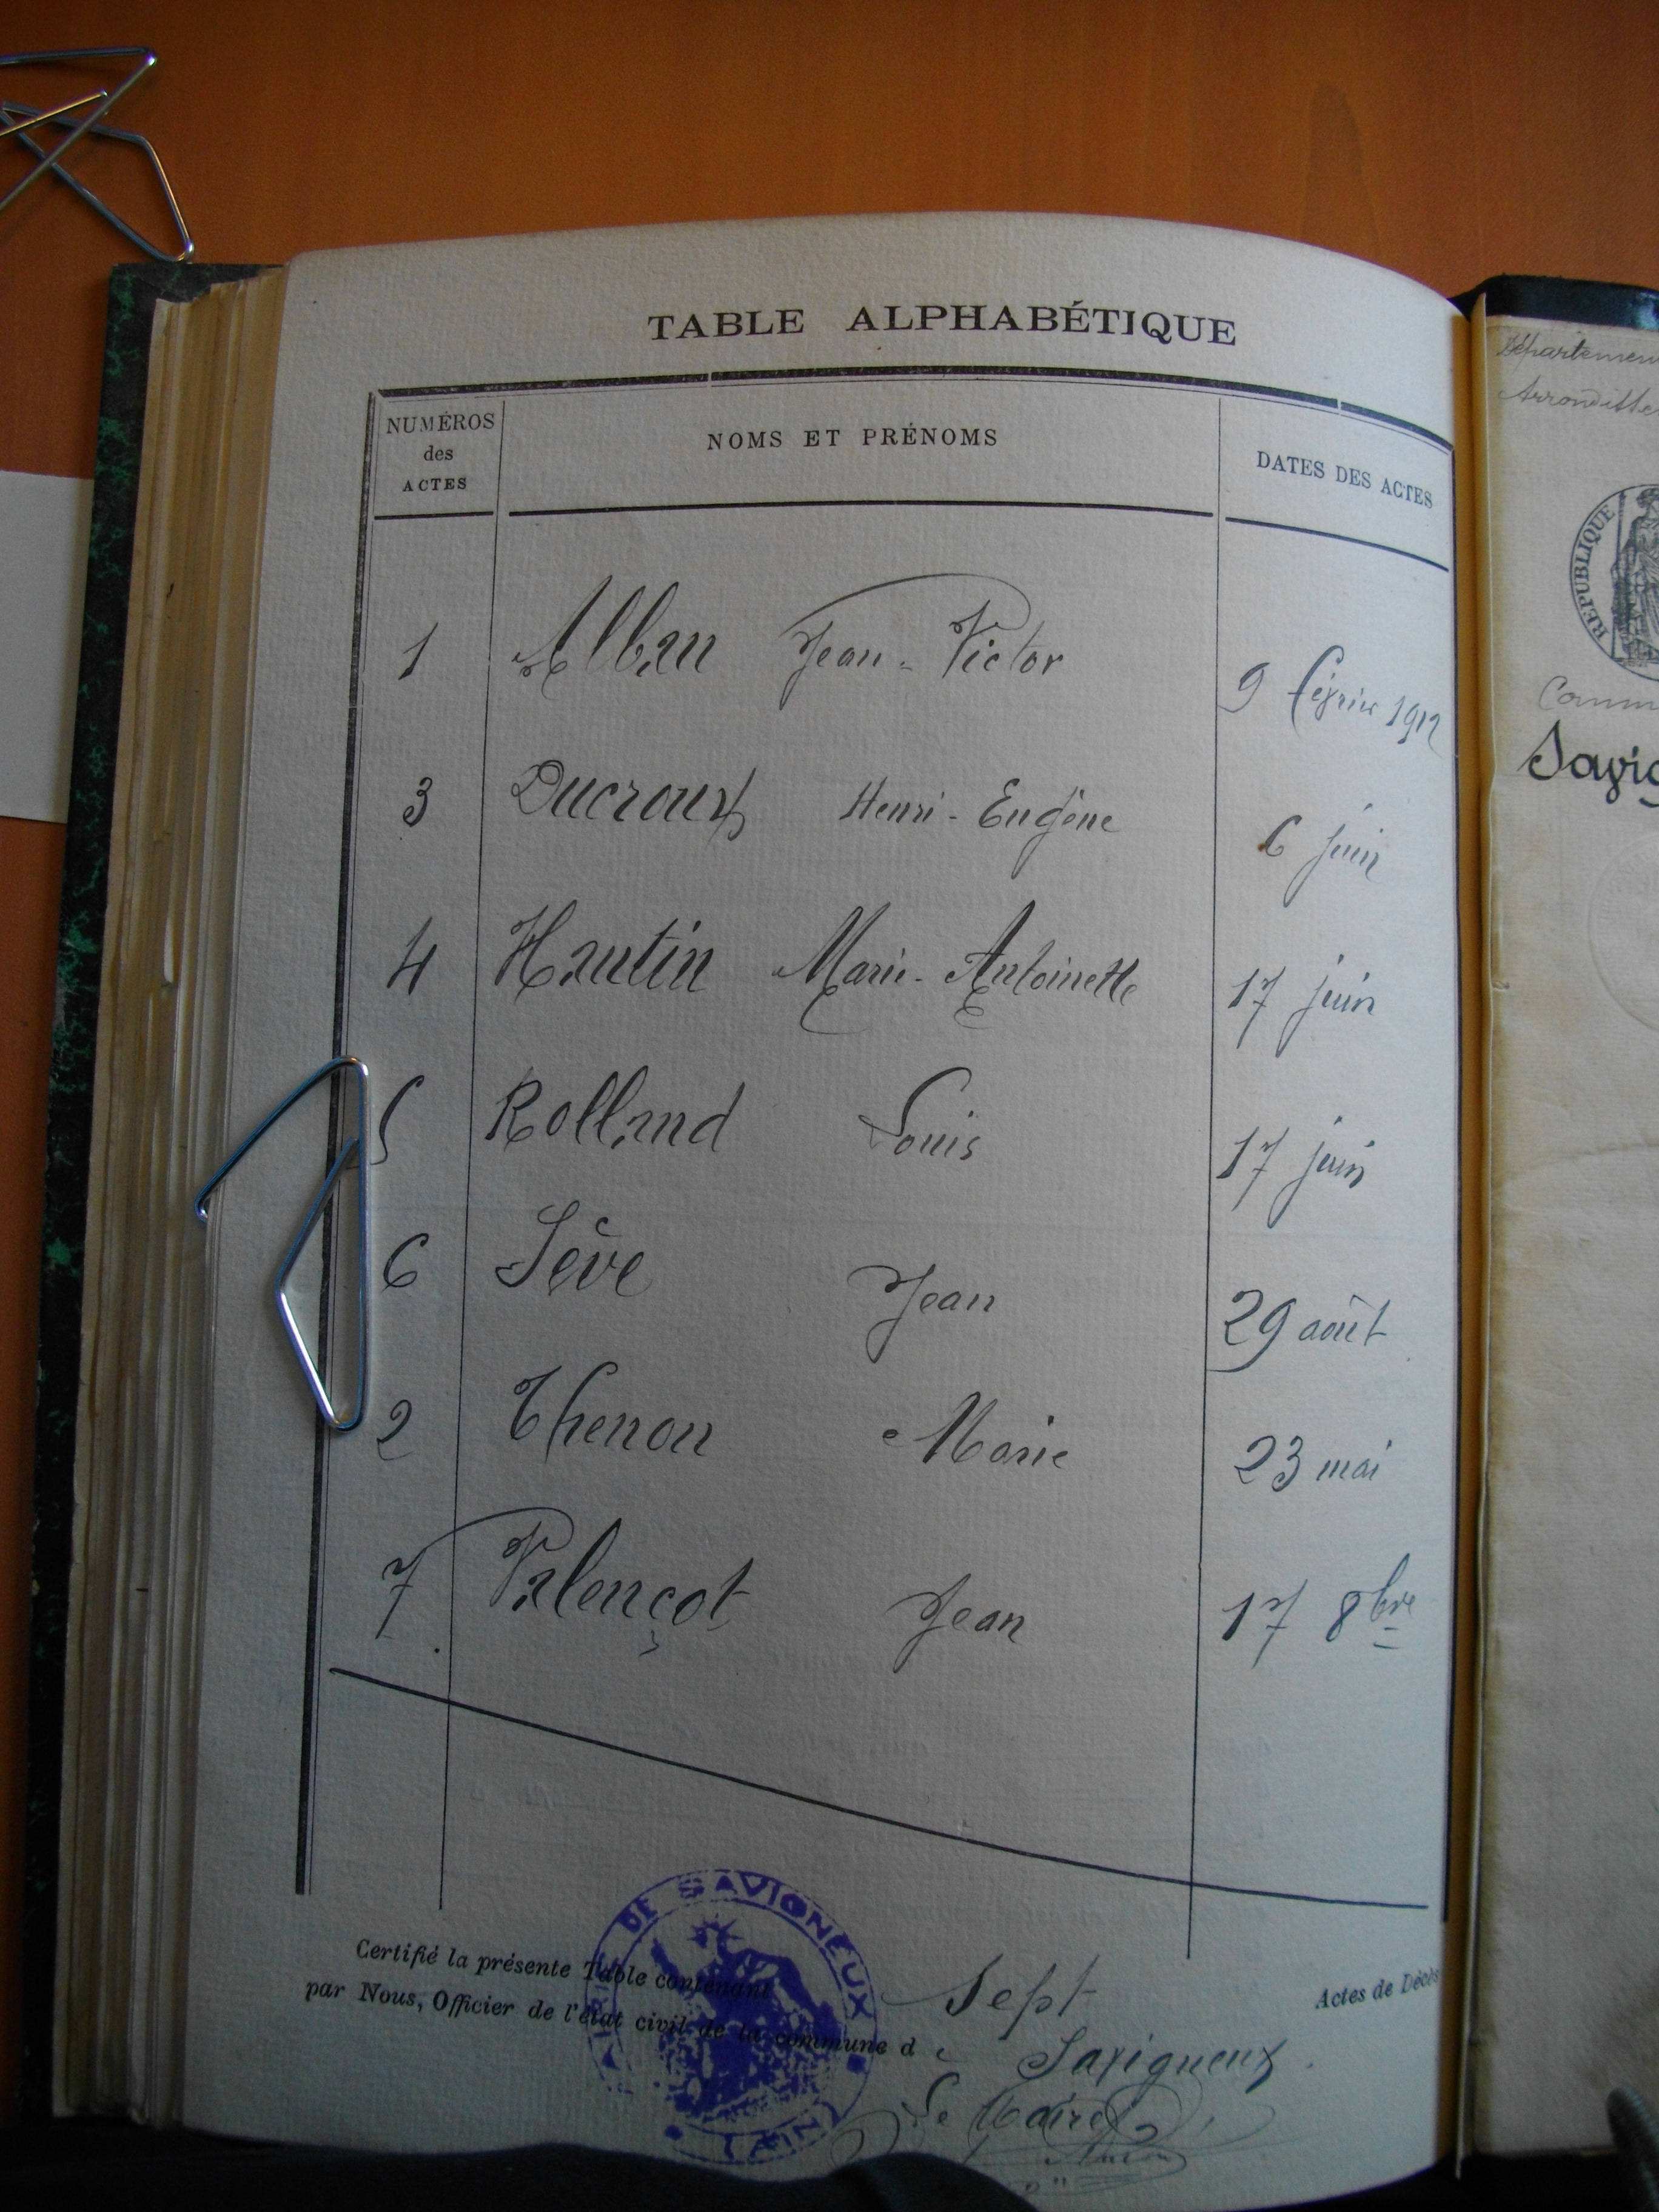 TABLE ALPHABÉTIQUE
NUMÉROS
des
ACTES
NOMS ET PRÉNOMS
DATES DES ACTES
1 Alban Jean-Victor 9 février 1912
3 Ducroux Henri-Eugène 6 juin
4 Hautin Marie-Antoinette 17 juin
5 Rolland Louis 17 juin
6 Sève Jean 29 août
2 Thenon Marie 23 mai
7 Valençot Jean 17 8bre
Certifié la présente Table contenant Sept Actes de Décès
par Nous, Officier de l'état civil de la commune de Savigneux.
Le Maire
MAIRIE DE SAVIGNEUX
(AIN)
Département
REPUBLIQUE